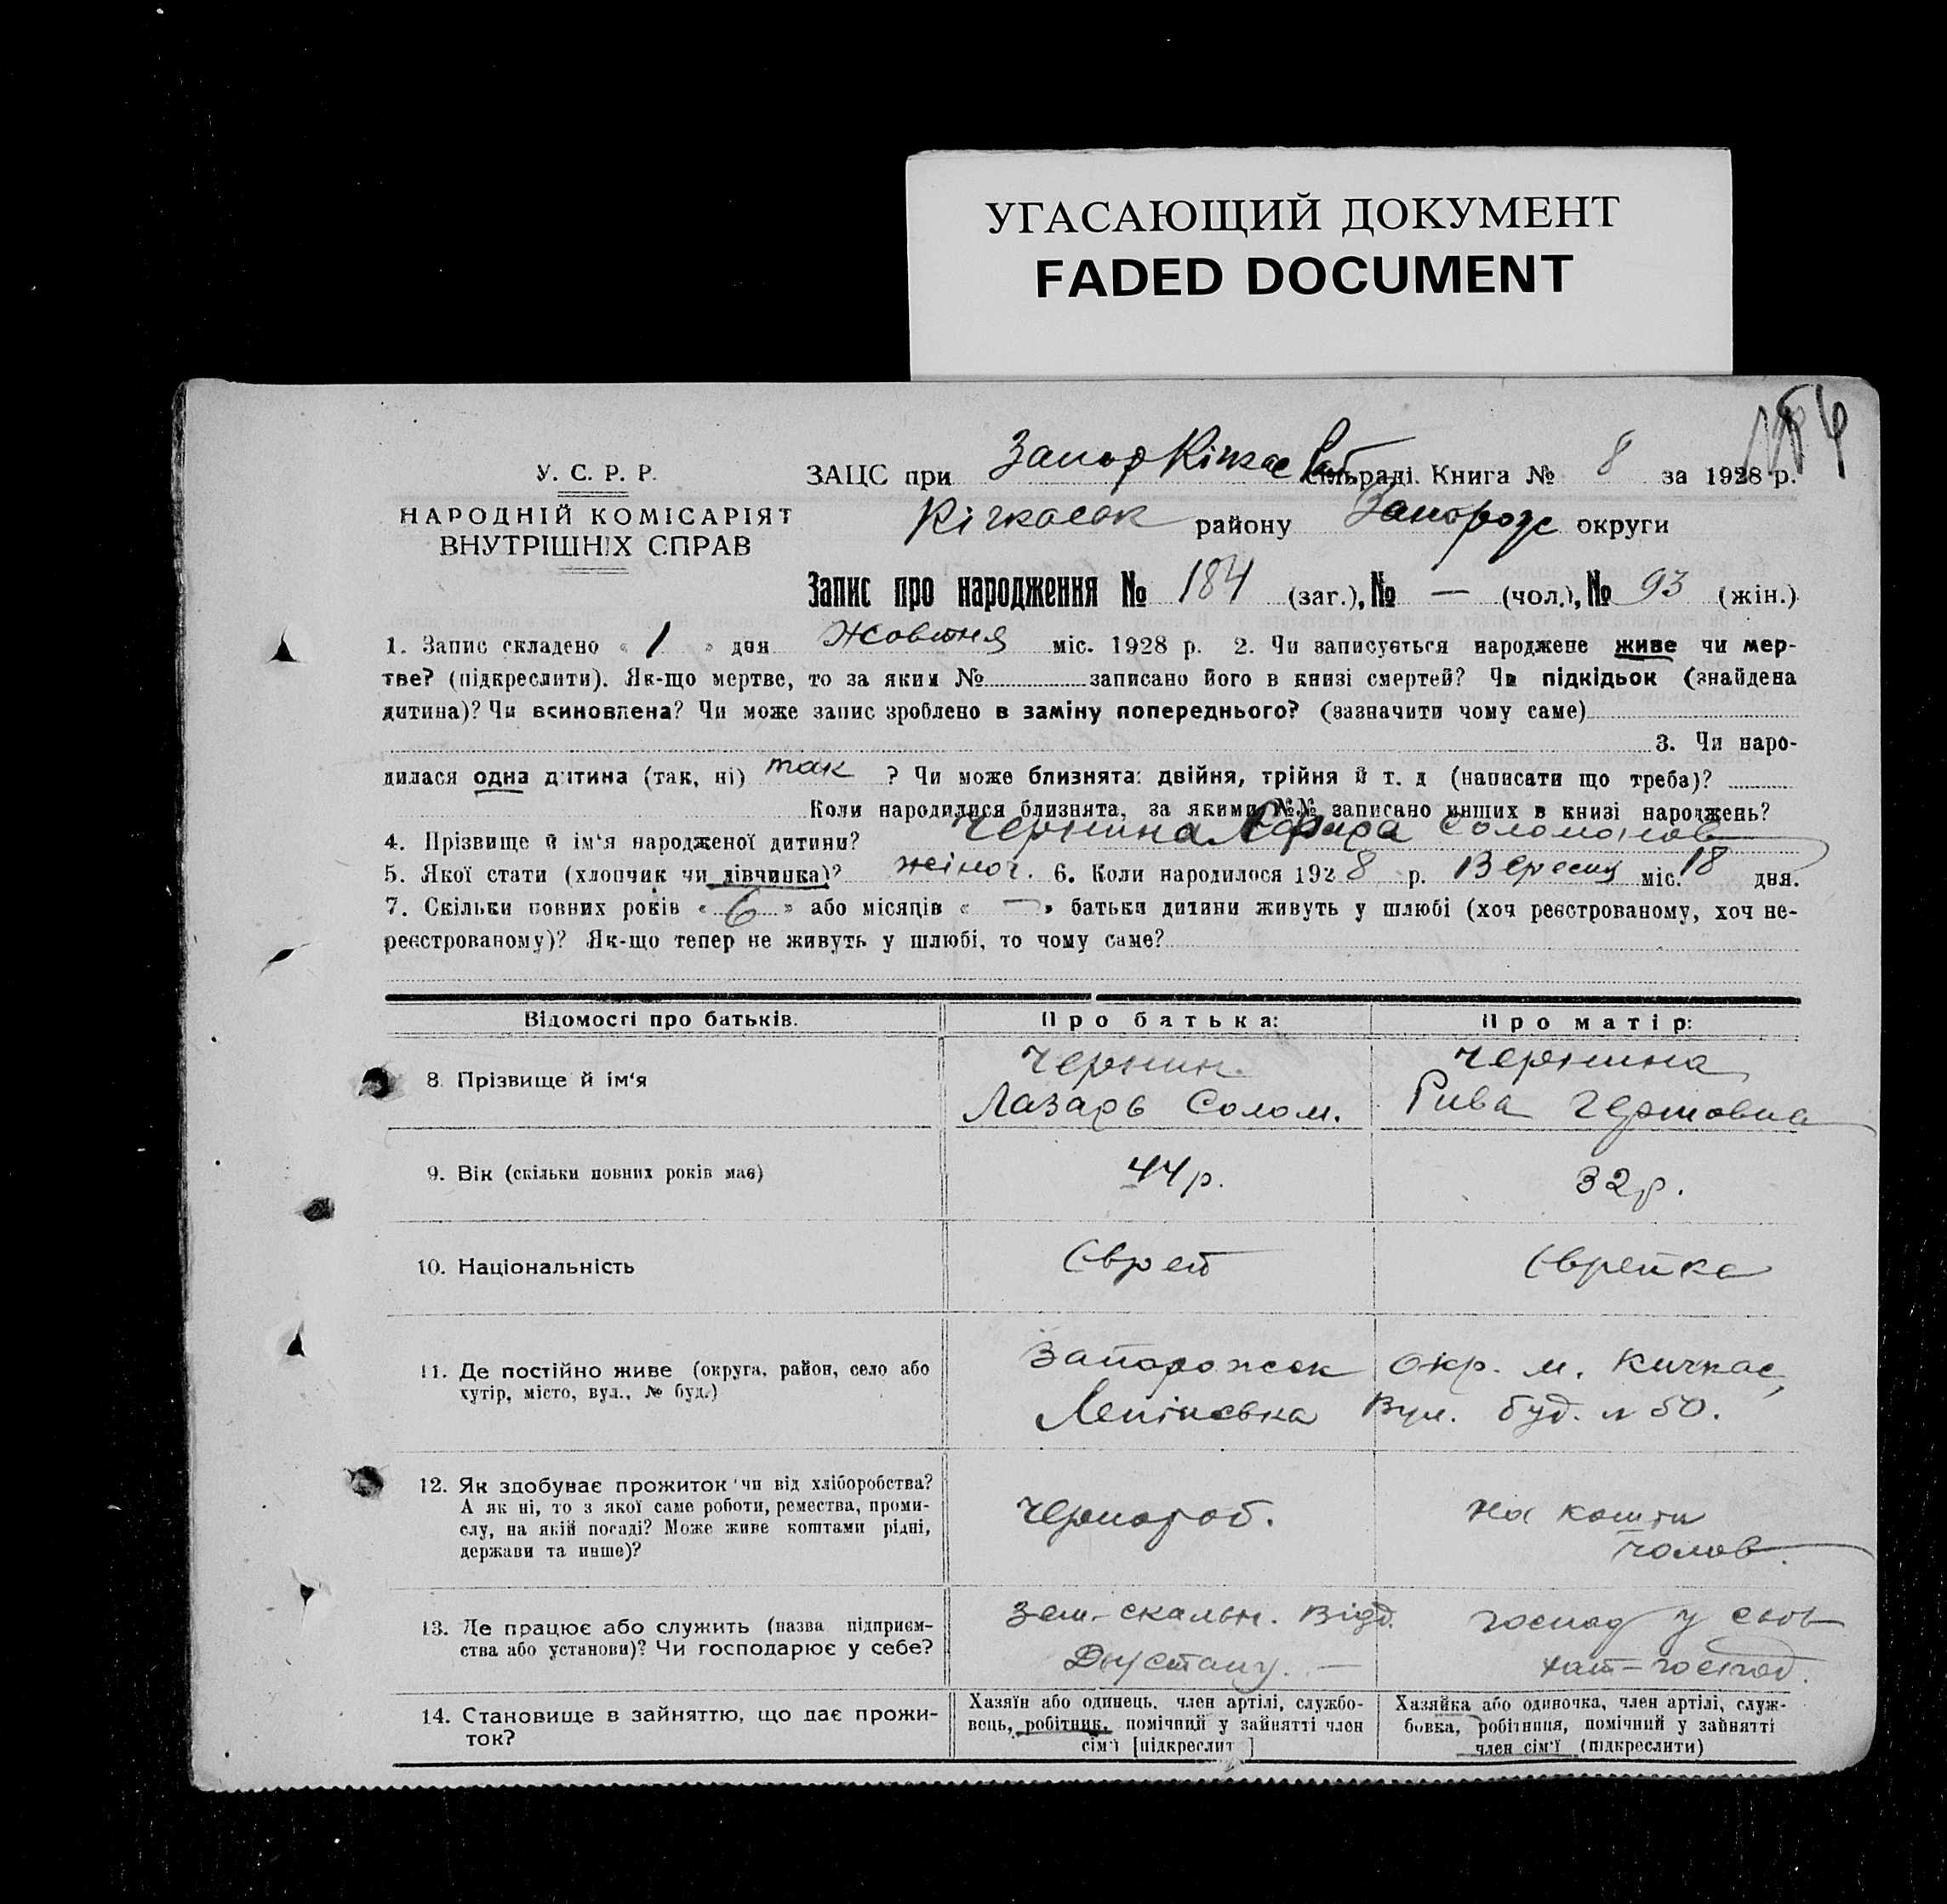 УГАСАЮЩИЙ ДОКУМЕНТ
FADED DOCUMENT
У. С. Р. Р.
НАРОДНІЙ КОМІСАРІЯТ
ВНУТРІШНІХ СПРАВ
ЗАЦС при Запор Кічкас сільраді. Книга № 8 за 1928 р.
Кічкаськ району Запорож округи
Запис про народження № 184 (заг.), № — (чол.), № 93 (жін.)
1. Запис складено « 1 » дня Жовтня міс. 1928 р. 2. Чи записується народжене живе чи мер-
тве? (підкреслити). Як-що мертве, то за яким № записано його в книзі смертей? Чи підкідьок (знайдена
дитина)? Чи всиновлена? Чи може запис зроблено в заміну попереднього? (зазначити чому саме)
3. Чи наро-
дилася одна дитина (так, ні) так ? Чи може близнята: двійня, трійня й т. д (написати що треба)?
Коли народилися близнята, за якими №№ записано инших в книзі народжень?
4. Прізвище й ім‘я народженої дитини? Чернина
5. Якої стати (хлопчик чи дівчинка)? жіноч. 6. Коли народилося 1928 р. Вересня міс. 18 дня.
7. Скільки повних років « 6 » або місяців « — » батьки дитини живуть у шлюбі (хоч реєстрованому, хоч не-
реєстрованому)? Як-що тепер не живуть у шлюбі, то чому саме?
Відомості про батьків. Про батька: Про матір:
8. Прізвище й ім‘я
Чернин. Чернина
Лазарь Солом. Рива Гертовна
9. Вік (скільки повних років має) 44 р. 32 р.
10. Національність Єврей Єврейка
11. Де постійно живе (округа, район, село або
хутір, місто, вул., № буд.)
Запорожськ Окр. м. Кичкас,
Ленінська Вул. буд. № 50.
12. Як здобуває прожиток чи від хліборобства?
А як ні, то з якої саме роботи, ремества, проми-
слу, на якій посаді? Може живе коштами рідні,
держави та инше)?
Чернороб. На кошти
чолов.
13. Де працює або служить (назва підприєм-
ства або установи)? Чи господарює у себе?
Зем-скальн. Відд. господ у своь
хат-господ.
14. Становище в зайняттю, що дає прожи-
ток?
Хазяїн або одинець, член артілі, службо-
вець, робітник, помічний у зайнятті член
сім‘ї [підкреслит ]
Хазяйка або одиночка, член артілі, служ-
бовка, робітниця, помічний у зайнятті
член сім‘ї (підкреслити)